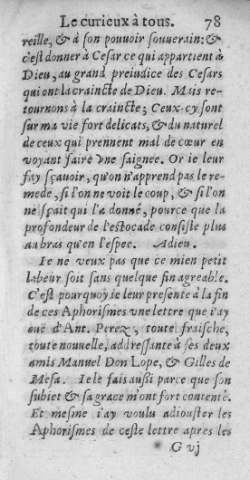 Le curieux à tous. 78
reille, & à son pouvoir souuerain: &
c'est donner à Cesar ce qui appartient à
Dieu, au grand preiudice des Cesars
qui ont la craincte de Dieu. Mais re-
tournons à la craincte; Ceux-cy sont
sur ma vie fort delicats, & du naturel
de ceux qui prennent mal de cœur en
voyant faire vne saignee. Or ie leur
fay sçauoir, qu'on n'apprend pas le re-
mede, si l'on ne voit le coup, & si l'on
ne sçait qui l'a donné, pource que la
profondeur de l'estocade consiste plus
au bras qu'en l'espee. Adieu.
Ie ne veux pas que ce mien petit
labeur soit sans quelque fin agreable.
C'est pourquoy ie leur presente à la fin
de ces Aphorismes vne lettre que i'ay
euë d'Ant. Perez, toute fraische,
toute nouuelle, addressante à ses deux
amis Manuel Don Lope, & Gilles de
Mesa. Ie le fais aussi parce que son
subiet & sa grace m'ont fort contenté.
Et mesme i'ay voulu adiouster les
Aphorismes de ceste lettre apres les
G vj